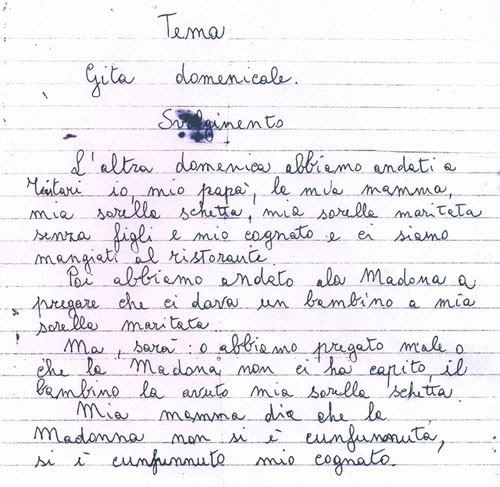 Tema
Gita domenicale.
Svolgimento
L'altra domenica abbiamo andati a
Tintari io, mio papà, la mia mamma,
mia sorella schetta, mia sorella maritata
senza figli e mio cognato e ci siamo
mangiati al ristorante.
Poi abbiamo andato ala Madona a
pregare che ci dava un bambino a mia
sorella maritata.
Ma, sarà: o abbiamo pregato male o
che la Madona, non ci ha capito, il
bambino la avuto mia sorella schetta.
Mia mamma dia che la
Madonna non si è cunfunnuta,
si è cunfunnuto mio cognato.